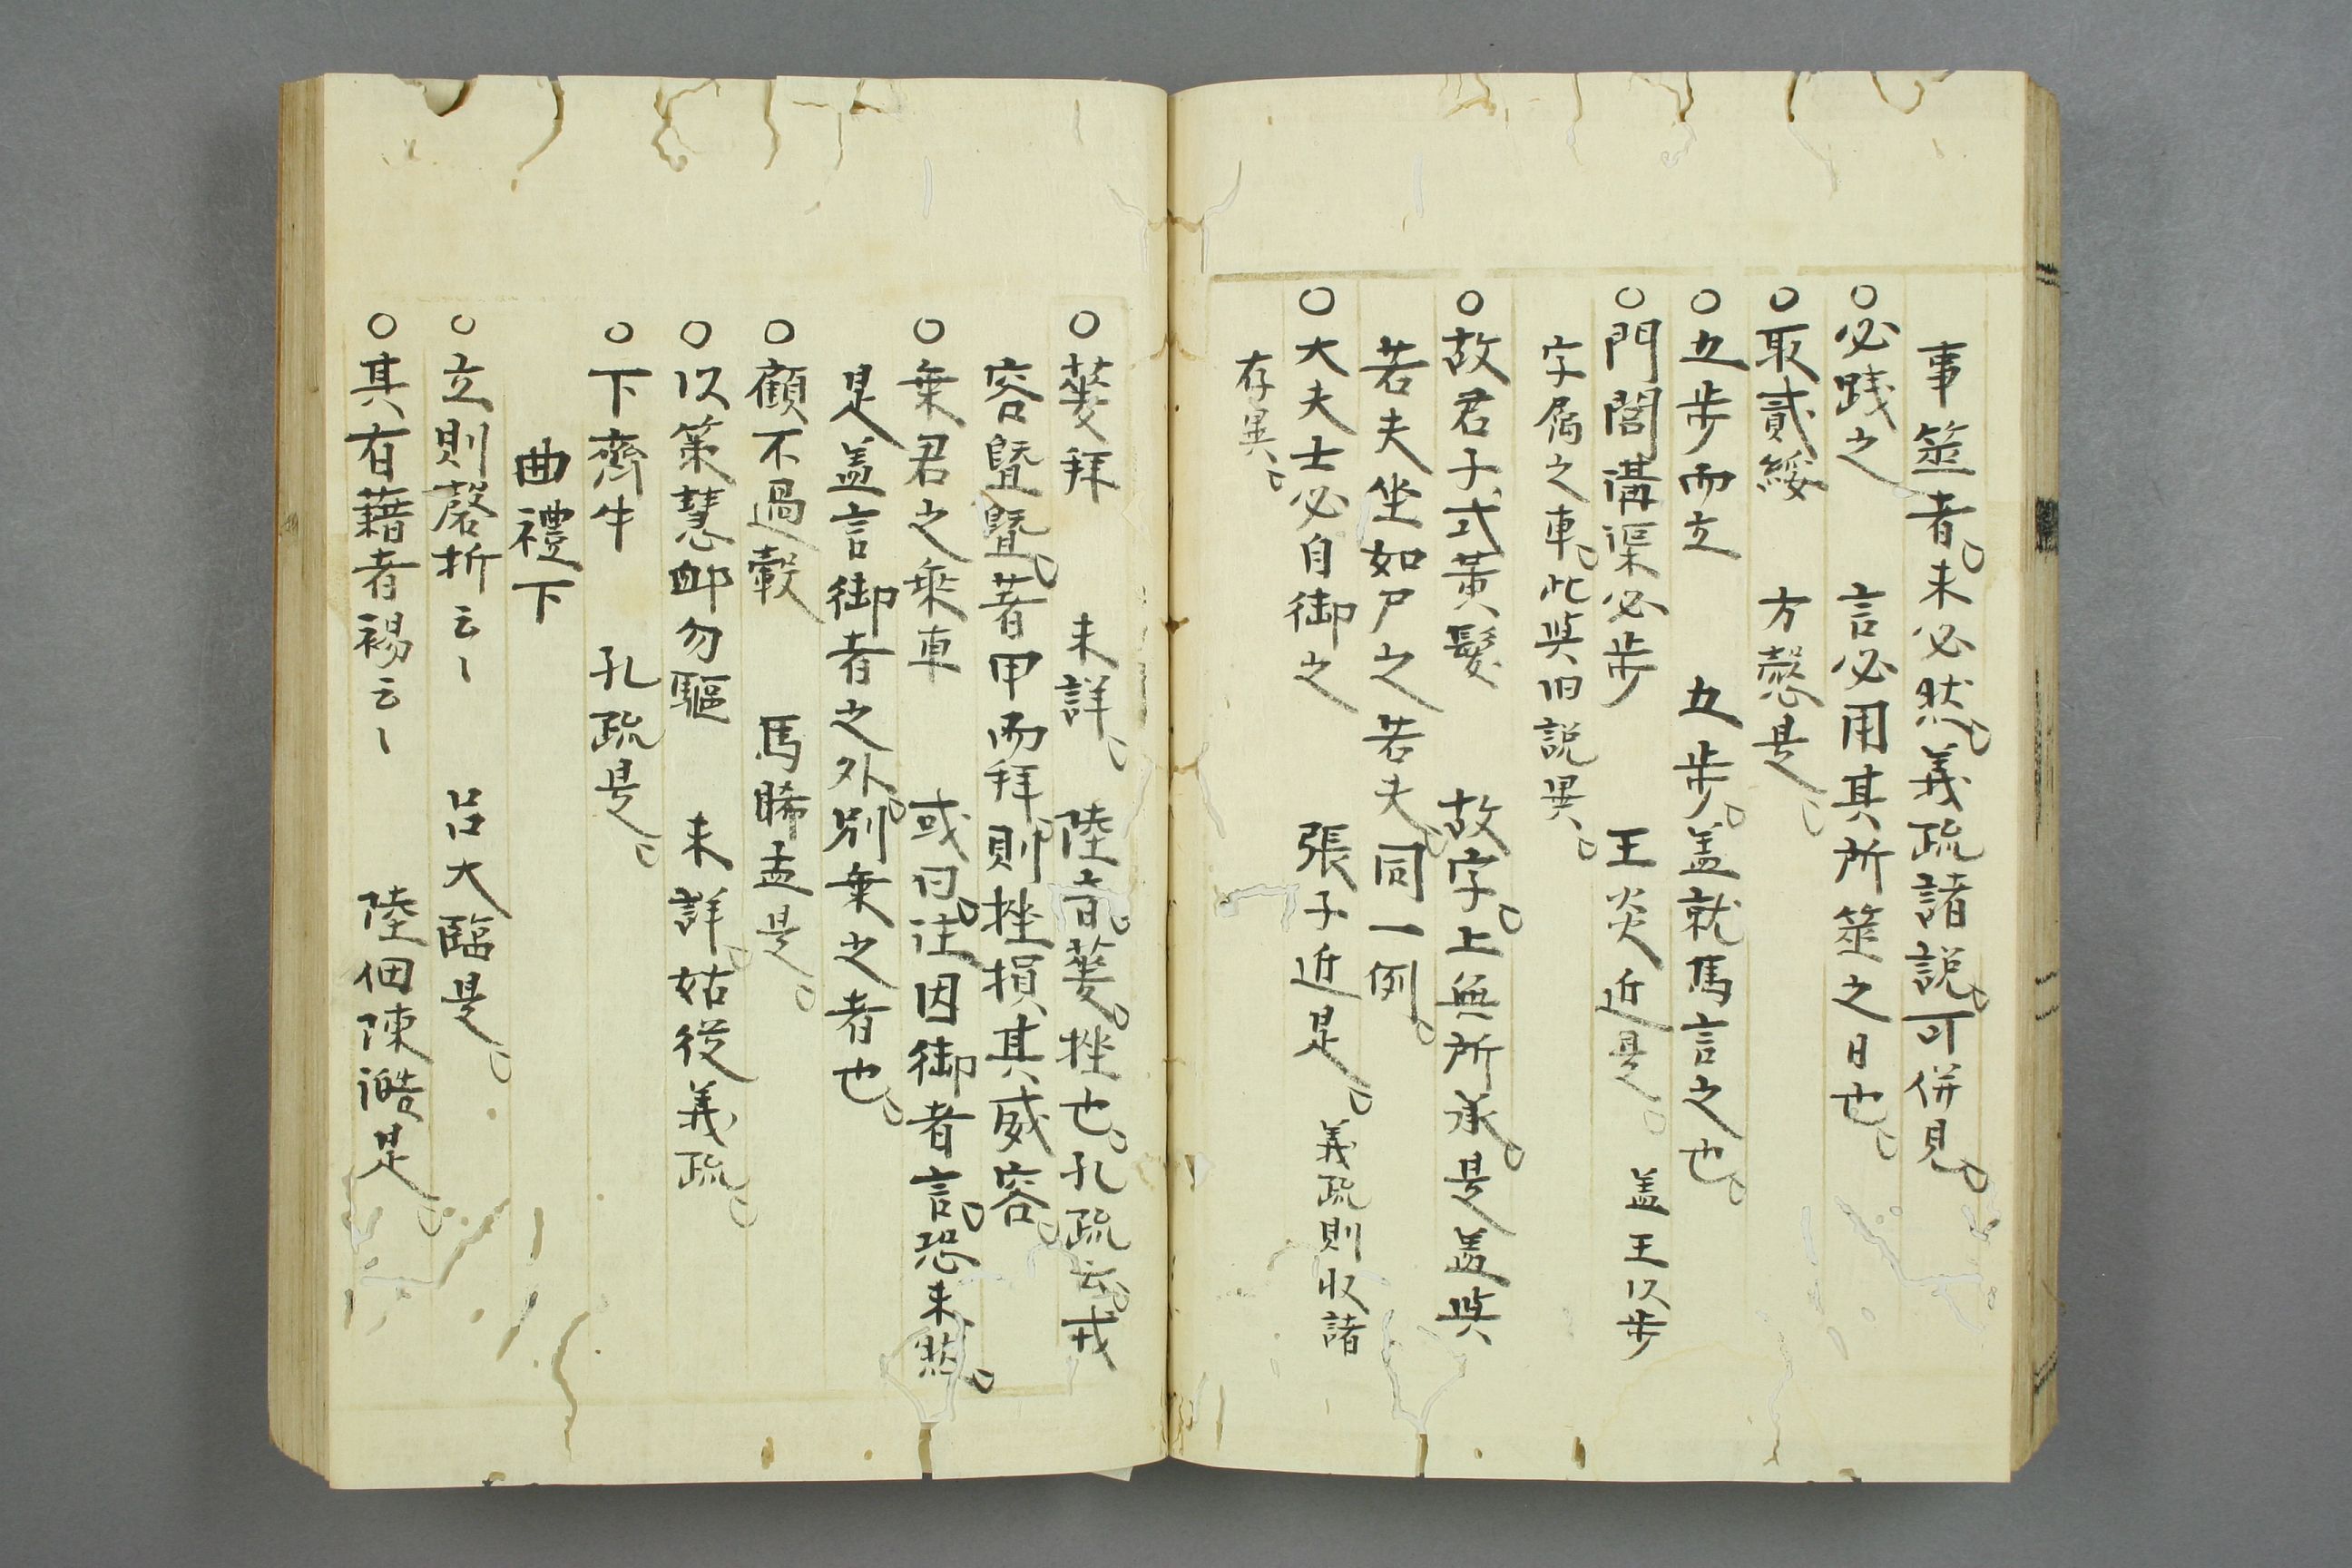 事筮者。未必然。義疏諸説。可併見。
○必踐之　言必用其所筮之日也。
○取貳綏　方慤是。
○五步而立　五步。盖就馬言之也。
○門閭溝渠必步　王炎近是。盖王以步
字属之車。此與旧説異。
○故君子式黃髮　故字。上無所承。是盖與
若夫坐如尸之若夫。同一例。
○大夫士必自御之　張子近是。義疏則收諸
存異。
○蓌拜　未詳。陸音。蓌。挫也。孔疏云。戎
容暨暨。著甲而拜。則挫損其威容。
○乗君之乘車　或曰。注因御者言。恐未然。
是盖言御者之外。別乗之者也。
○顧不過轂　馬睎孟是。
○以策彗卹勿驅　未詳。姑從義疏。
○下齊牛　孔疏是。
曲禮下
○立則磬折云〻　呂大臨是。
○其有藉者裼云〻　陸佃陳澔是。